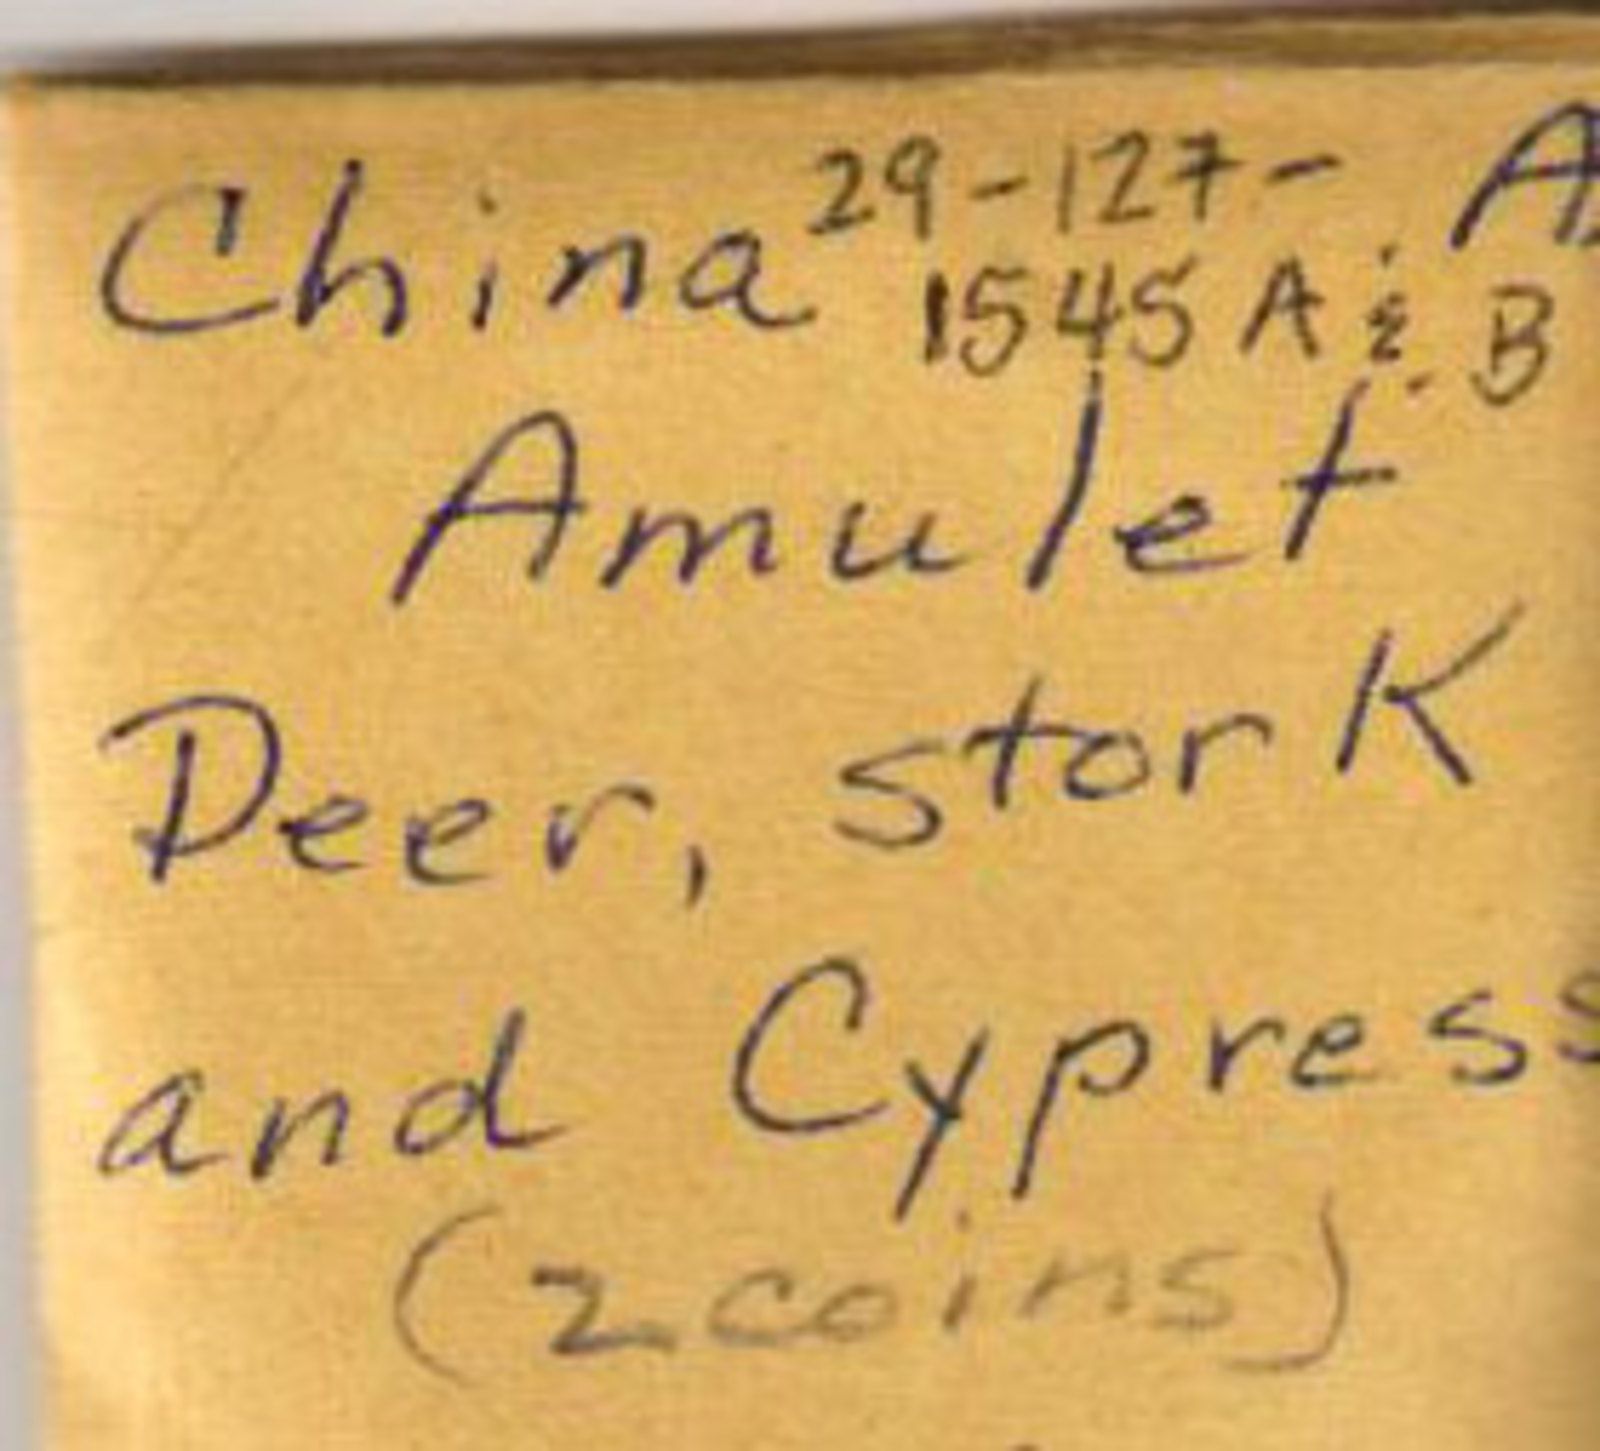 China 29-127-
1545 A & B
Amulet
Deer, stork
and Cypress
(2 coins)